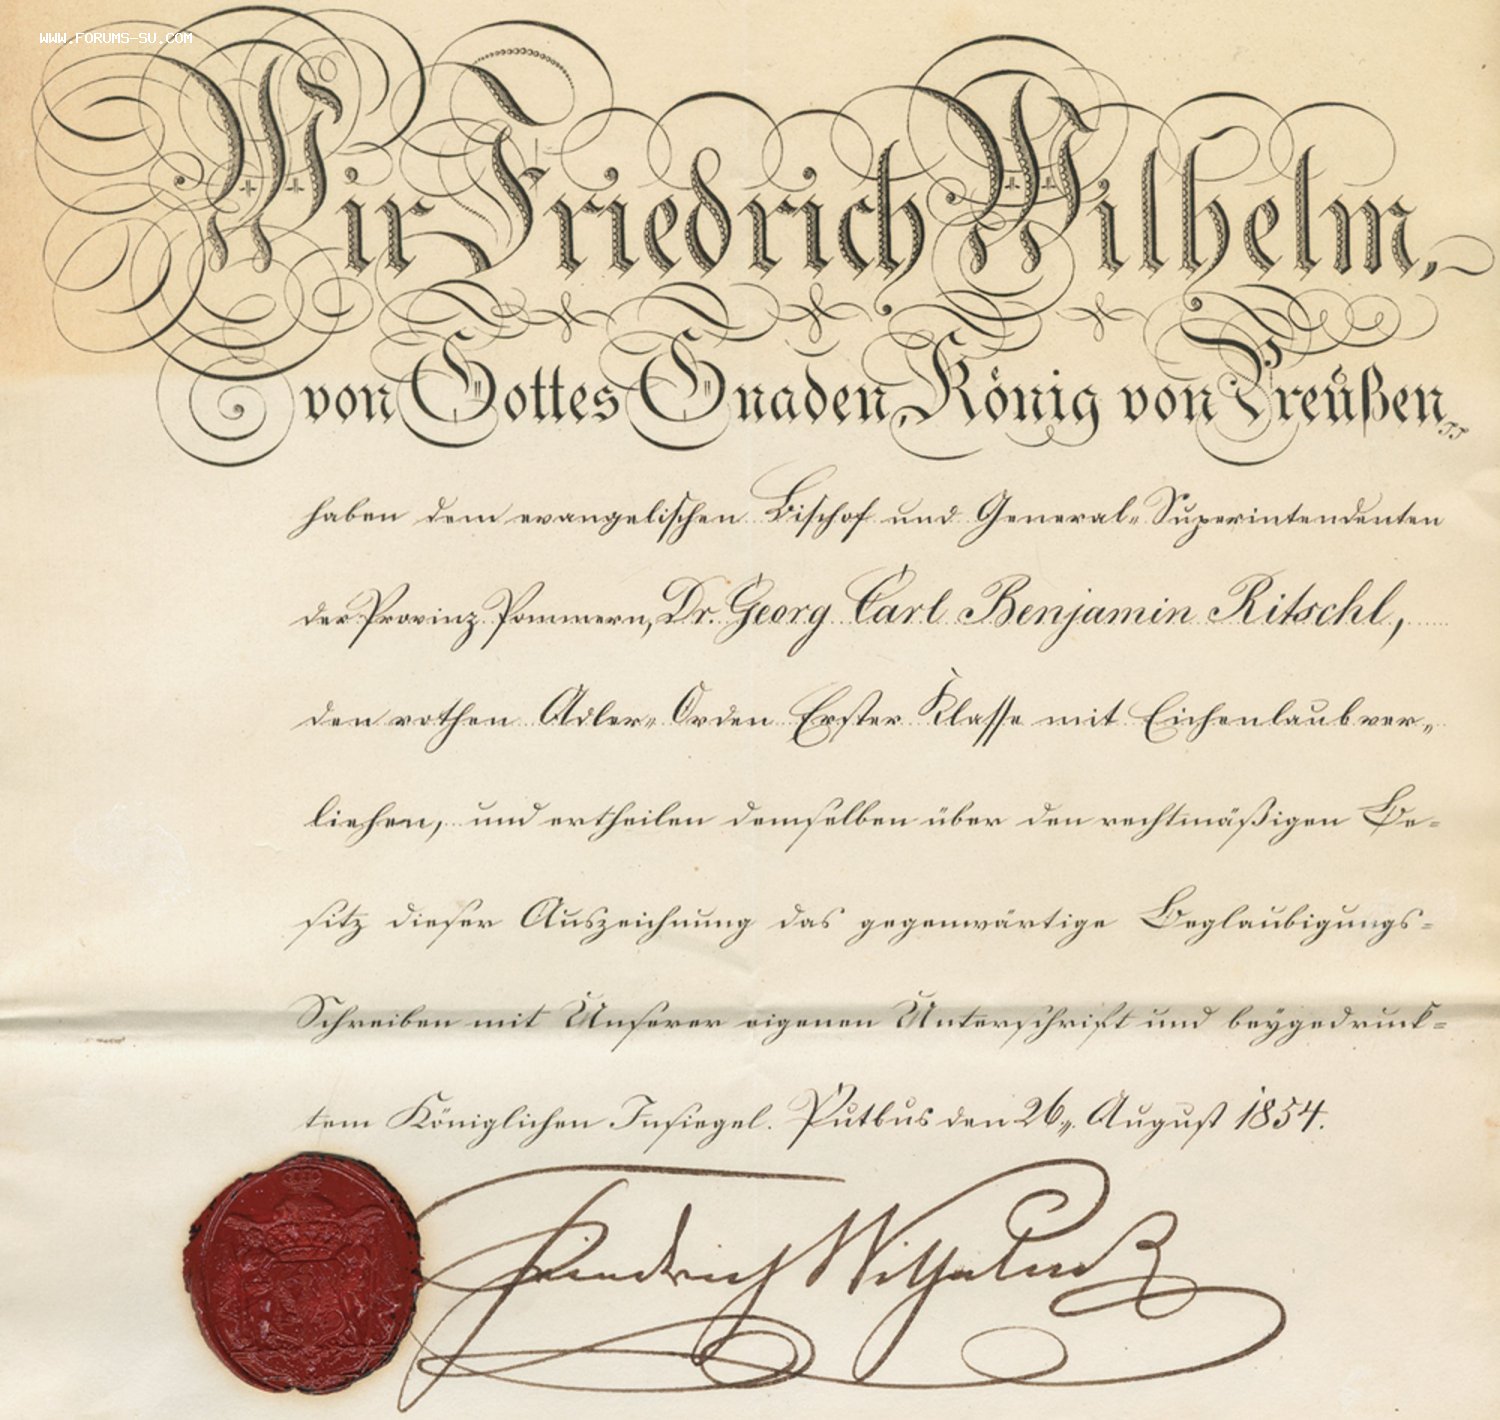 WWW.FORUMS-SU.COM
Wir Friedrich Wilhelm,
von Gottes Gnaden, König von Preußen
haben dem evangelischen Bischof und General-Superintendenten
der Provinz Pommern, Dr. Georg Carl Benjamin Ritschl,
den rothen Adler-Orden Erster Klasse mit Eichenlaub ver-
liehen, und ertheilen demselben über den rechtmäßigen Be-
sitz dieser Auszeichnung das gegenwärtige Beglaubigungs-
Schreiben mit Unserer eigenen Unterschrift und beygedruck-
tem Königlichen Insiegel. Putbus den 26. August 1854.
Friedrich Wilhelm